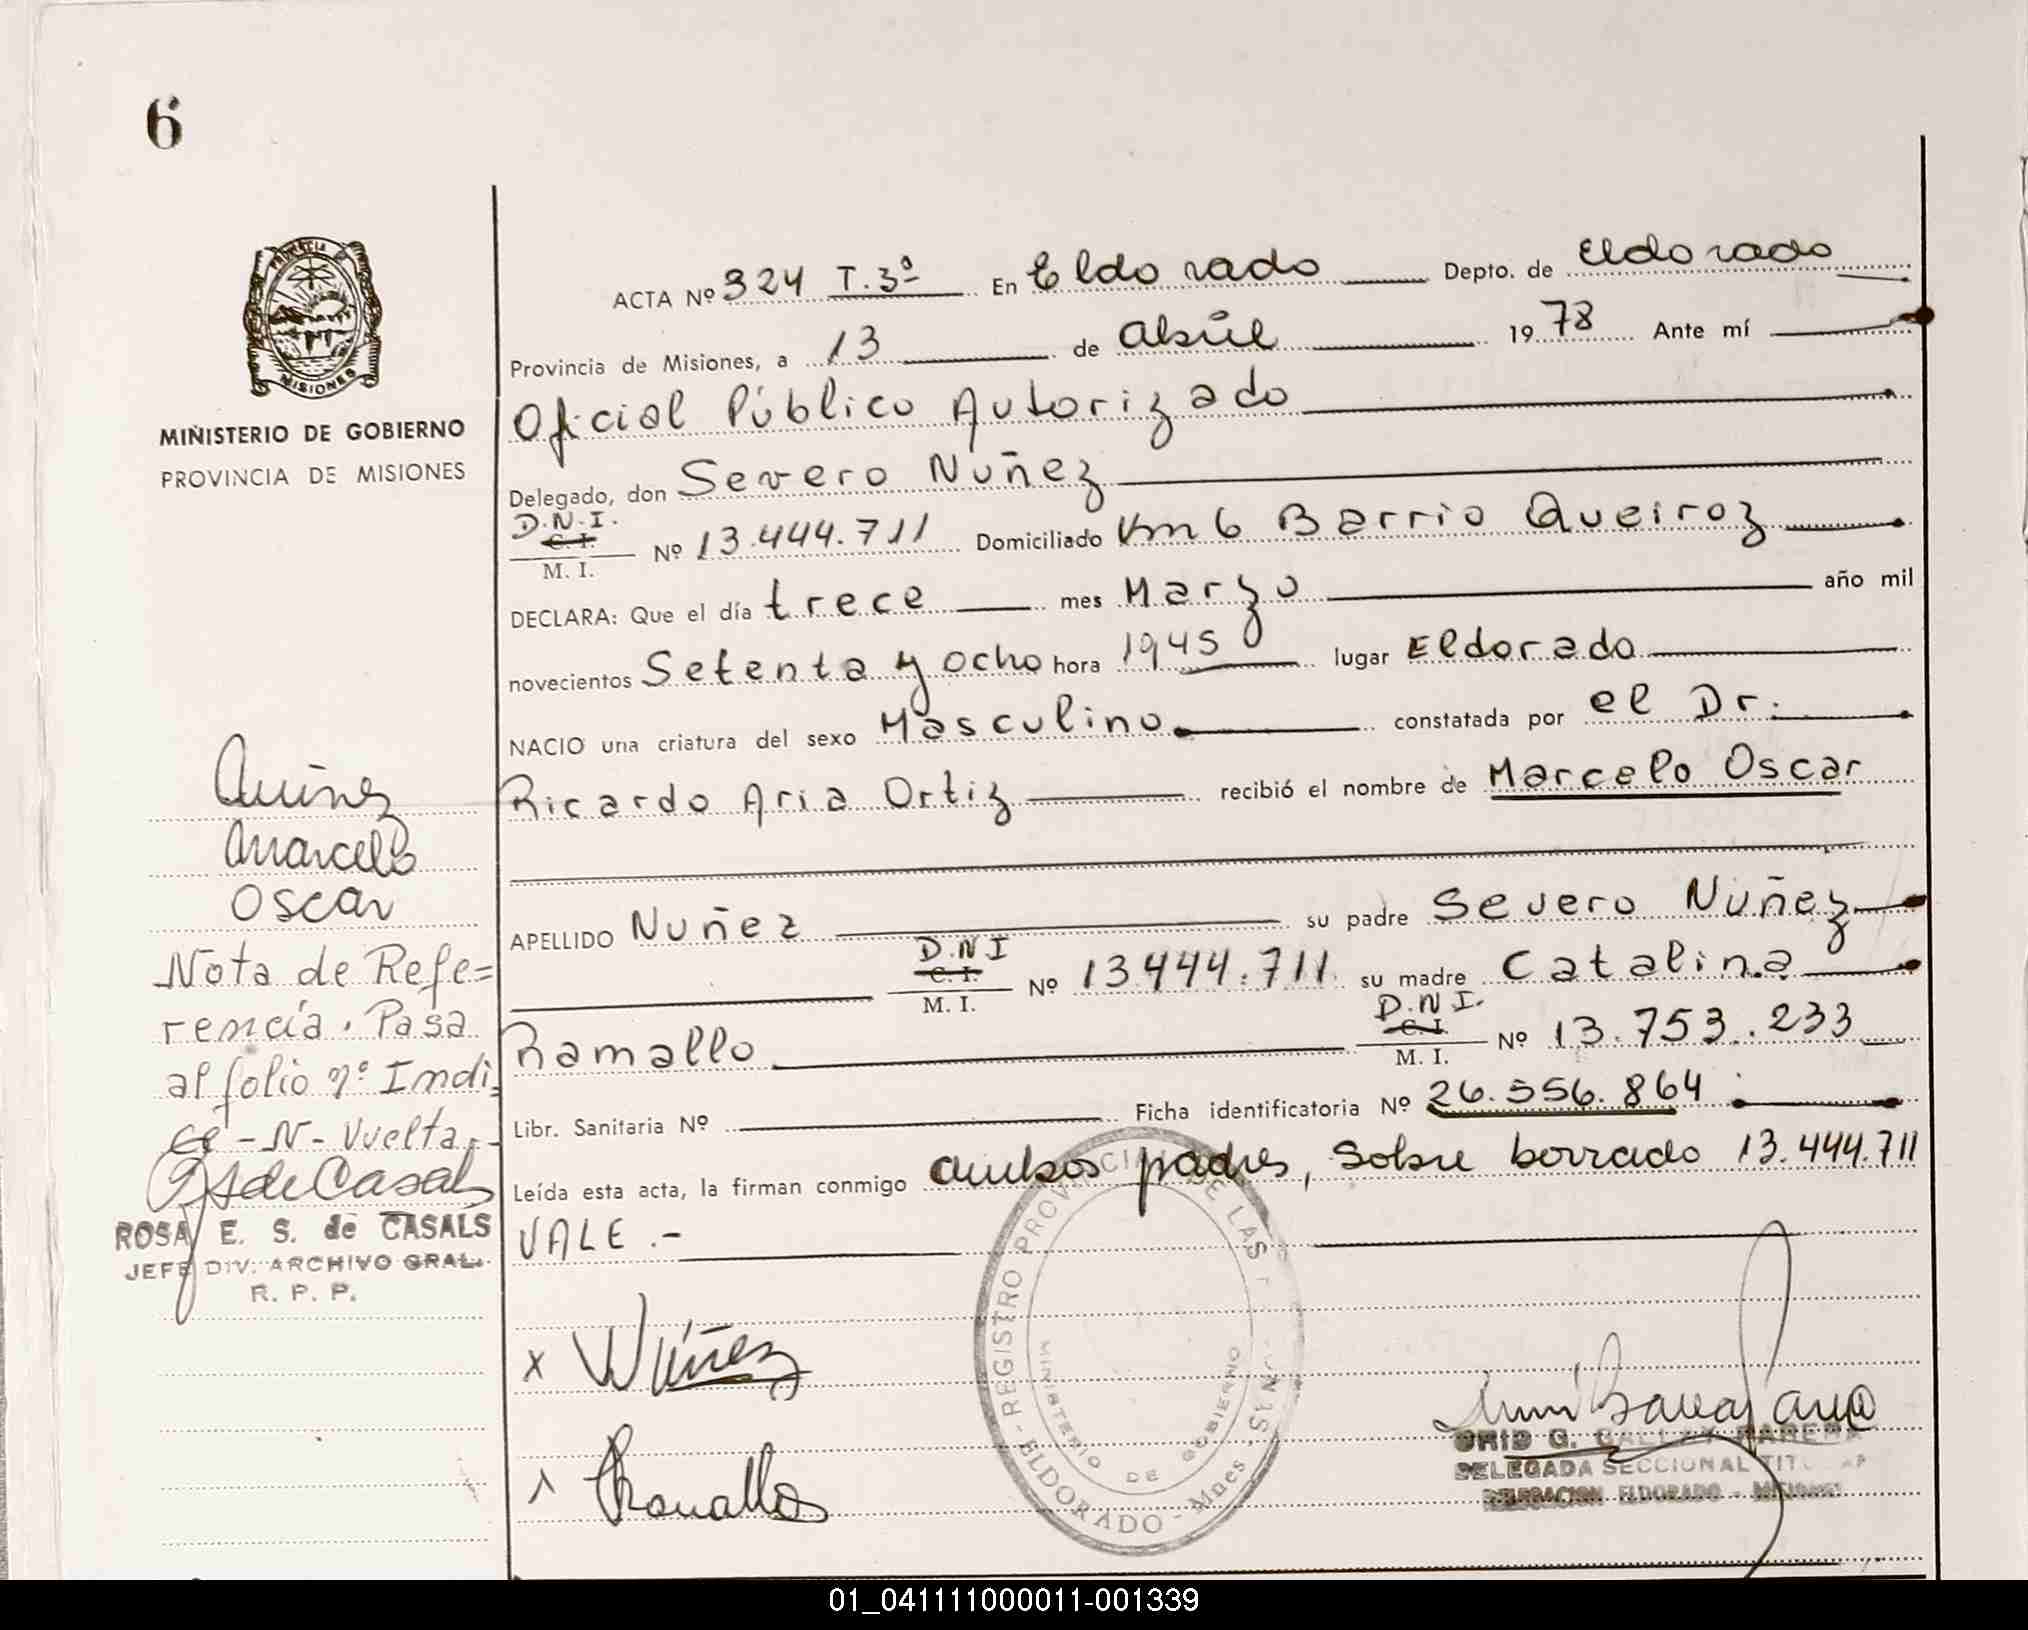 6
PROVINCIA
MISIONES
MIÑISTERIO DE GOBIERNO
PROVINCIA DE MISIONES
ACTA Nº 324 T.3º En Eldorado Depto. de Eldorado
Provincia de Misiones, a 13 de abril 1978 Ante mí
Oficial Público Autorizado
Delegado, don Severo Nuñez
D.N.I.
C. I.
M. I.
Nº 13.444.711 Domiciliado Km 6 Barrio Queiroz
DECLARA: Que el día trece mes Marzo año mil
novecientos Setenta y ocho hora 1945 lugar Eldorado
NACIO una criatura del sexo Masculino constatada por el Dr.
Ricardo Aria Ortiz recibió el nombre de Marcelo Oscar
APELLIDO Nuñez su padre Severo Nuñez
D.N.I
C. I.
M. I.
Nº 13444.711 su madre Catalina
Ramallo
D.N.I.
C. I.
M. I.
Nº 13.753.233
Libr. Sanitaria Nº Ficha identificatoria Nº 26.556.864
Leída esta acta, la firman conmigo ambos padres, sobre borrado 13.444.711
VALE.-
x Núñez
Ramallo
Marcelo
Oscar
Nota de Refe=
rencia. Pasa
al folio nº Indi
ce - N - Vuelta.-
RSdeCasals
ROSA E. S. de CASALS
JEFE DIV. ARCHIVO GRAL.
R. P. P.
REGISTRO PROVINCIAL DE LAS
- ELDORADO - Mnes.
MINISTERIO DE GOBIERNO
DELEGADA SECCIONAL
DELEGACION ELDORADO - MISIONES
01_041111000011-001339